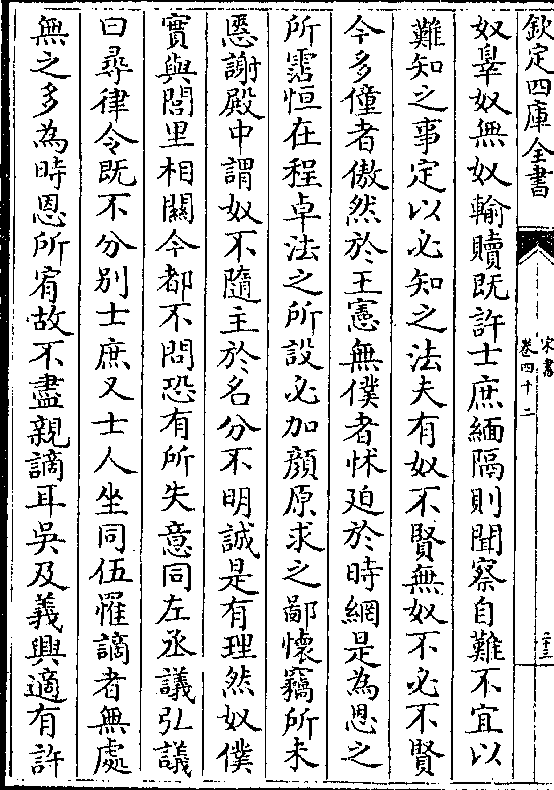 欽定四庫全書
宋書
卷四十二
二十三
奴辠奴無奴輸贖既許士庶緬隔則聞察自難不宜以
難知之事定以必知之法夫有奴不賢無奴不必不賢
今多僮者傲然於王憲無僕者怵迫於時網是為恩之
所霑恒在程卓法之所設必加顔原求之鄙懷竊所未
愜謝殿中謂奴不隨主於名分不明誠是有理然奴僕
實與閭里相關今都不問恐有所失意同左丞議弘議
曰尋律令既不分别士庶又士人坐同伍罹謫者無處
無之多為時恩所宥故不盡親謫耳吳及義興適有許